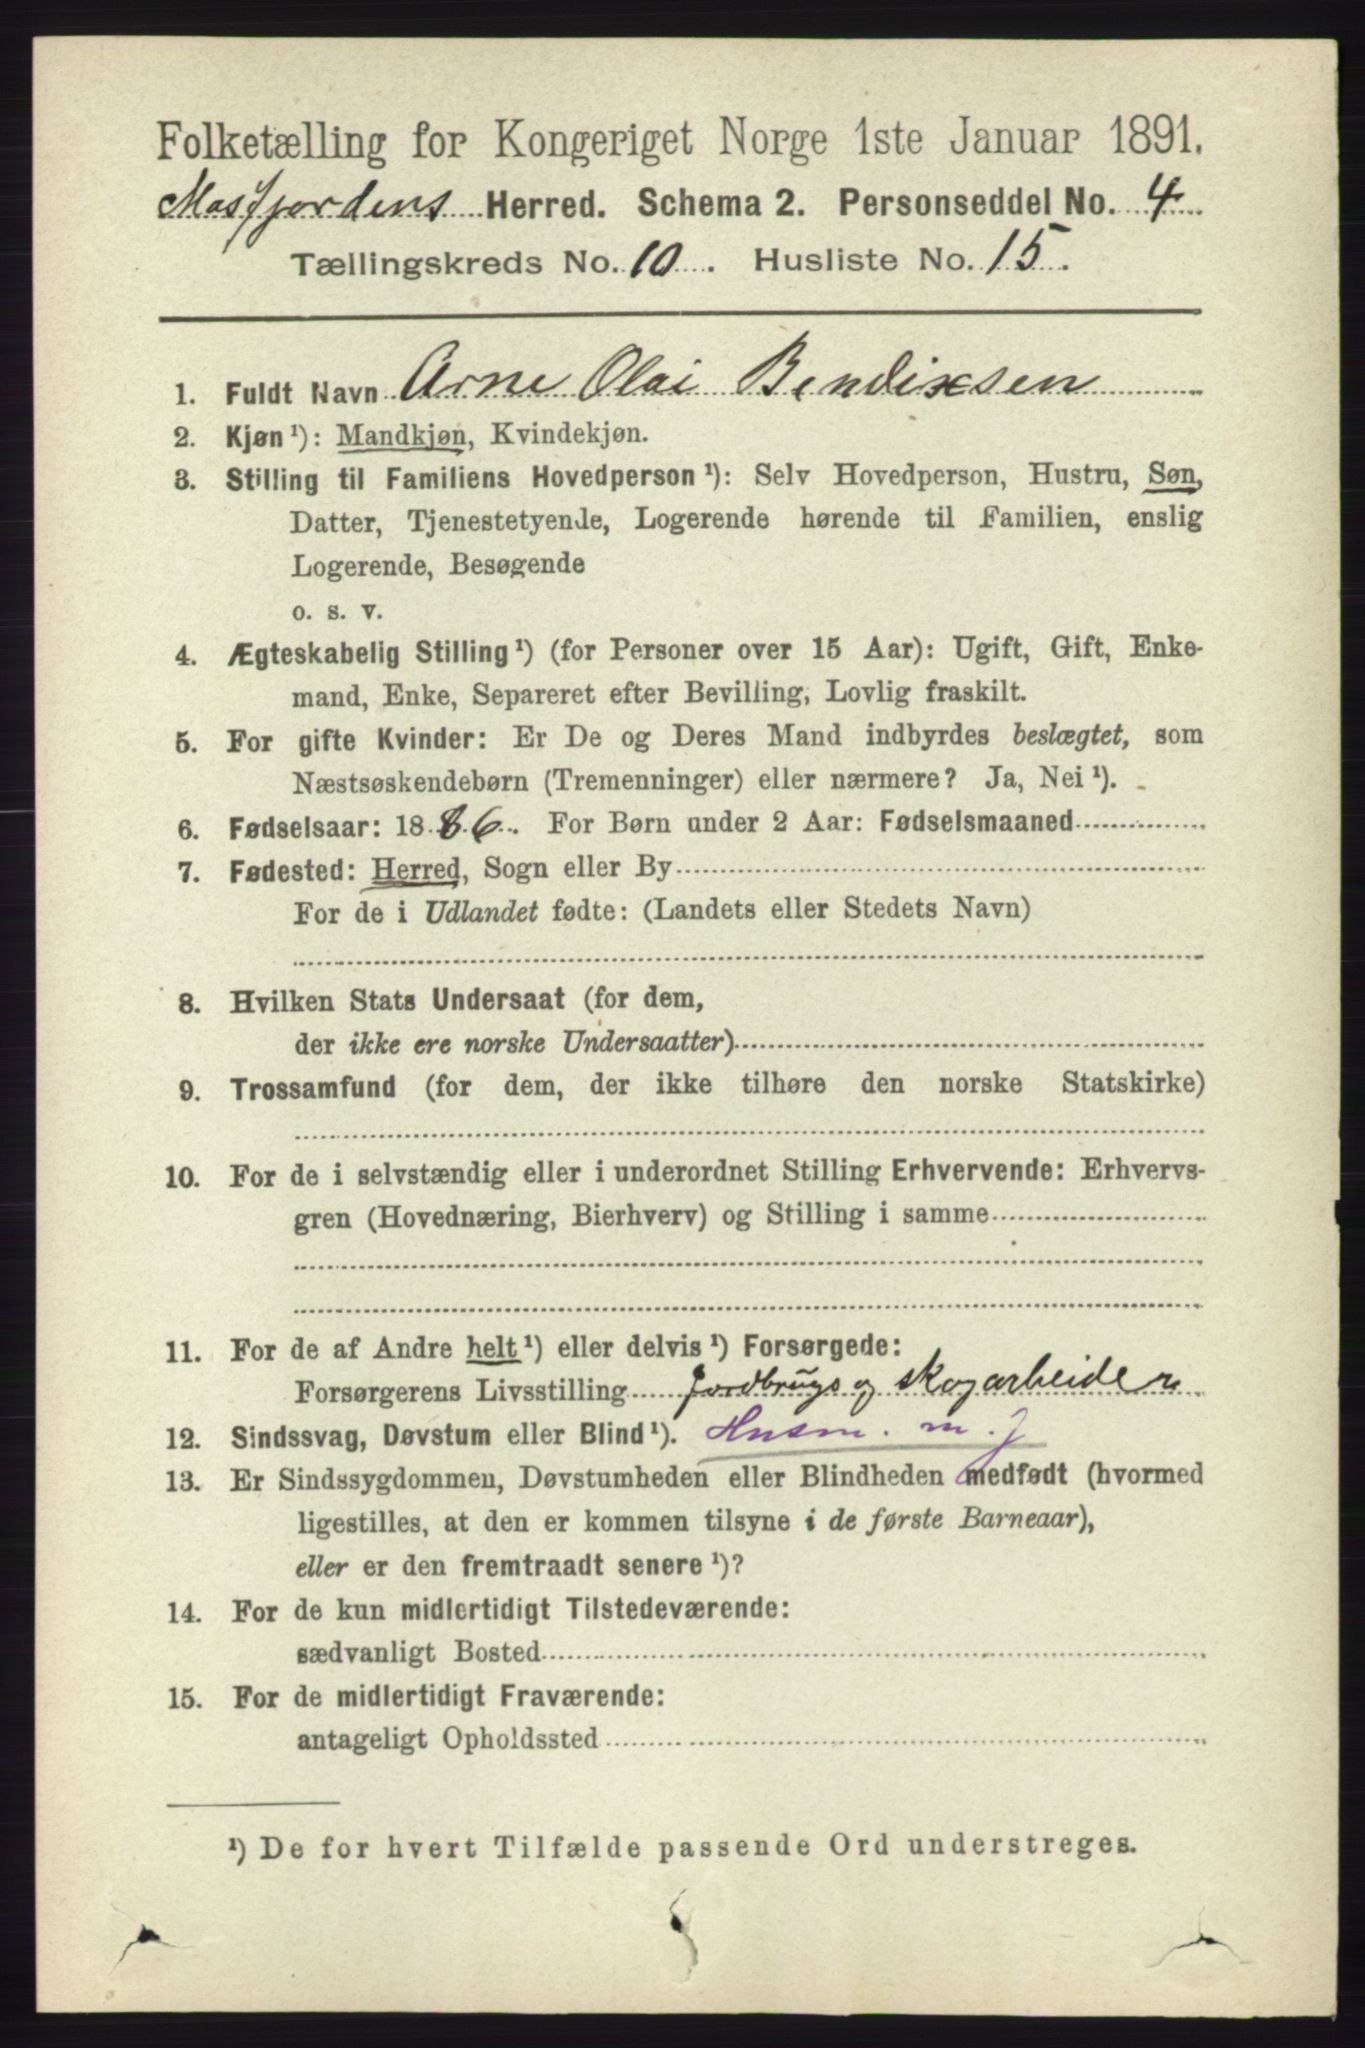 Folketælling for Kongeriget Norge 1ste Januar 1891.
Masfjordens Herred. Schema 2. Personseddel No. 4
Tællingskreds No. 10. Husliste No. 15.
1. Fuldt Navn Arne Olai Bendixsen
2. Kjøn ¹): Mandkjøn, Kvindekjøn.
3. Stilling til Familiens Hovedperson ¹): Selv Hovedperson, Hustru, Søn,
Datter, Tjenestetyende, Logerende hørende til Familien, enslig
Logerende, Besøgende
o. s. v.
4. Ægteskabelig Stilling ¹) (for Personer over 15 Aar): Ugift, Gift, Enke-
mand, Enke, Separeret efter Bevilling, Lovlig fraskilt.
5. For gifte Kvinder: Er De og Deres Mand indbyrdes beslægtet, som
Næstsøskendebørn (Tremenninger) eller nærmere? Ja, Nei ¹).
6. Fødselsaar: 1886. For Børn under 2 Aar: Fødselsmaaned
7. Fødested: Herred, Sogn eller By
For de i Udlandet fødte: (Landets eller Stedets Navn)
8. Hvilken Stats Undersaat (for dem,
der ikke ere norske Undersaatter)
9. Trossamfund (for dem, der ikke tilhøre den norske Statskirke)
10. For de i selvstændig eller i underordnet Stilling Erhvervende: Erhvervs-
gren (Hovednæring, Bierhverv) og Stilling i samme
11. For de af Andre helt ¹) eller delvis ¹) Forsørgede:
Forsørgerens Livsstilling Jordbrugs og skogarbeider
12. Sindssvag, Døvstum eller Blind ¹). Husm. m. j
13. Er Sindssygdommen, Døvstumheden eller Blindheden medfødt (hvormed
ligestilles, at den er kommen tilsyne i de første Barneaar),
eller er den fremtraadt senere ¹)?
14. For de kun midlertidigt Tilstedeværende:
sædvanligt Bosted
15. For de midlertidigt Fraværende:
antageligt Opholdssted
¹) De for hvert Tilfælde passende Ord understreges.